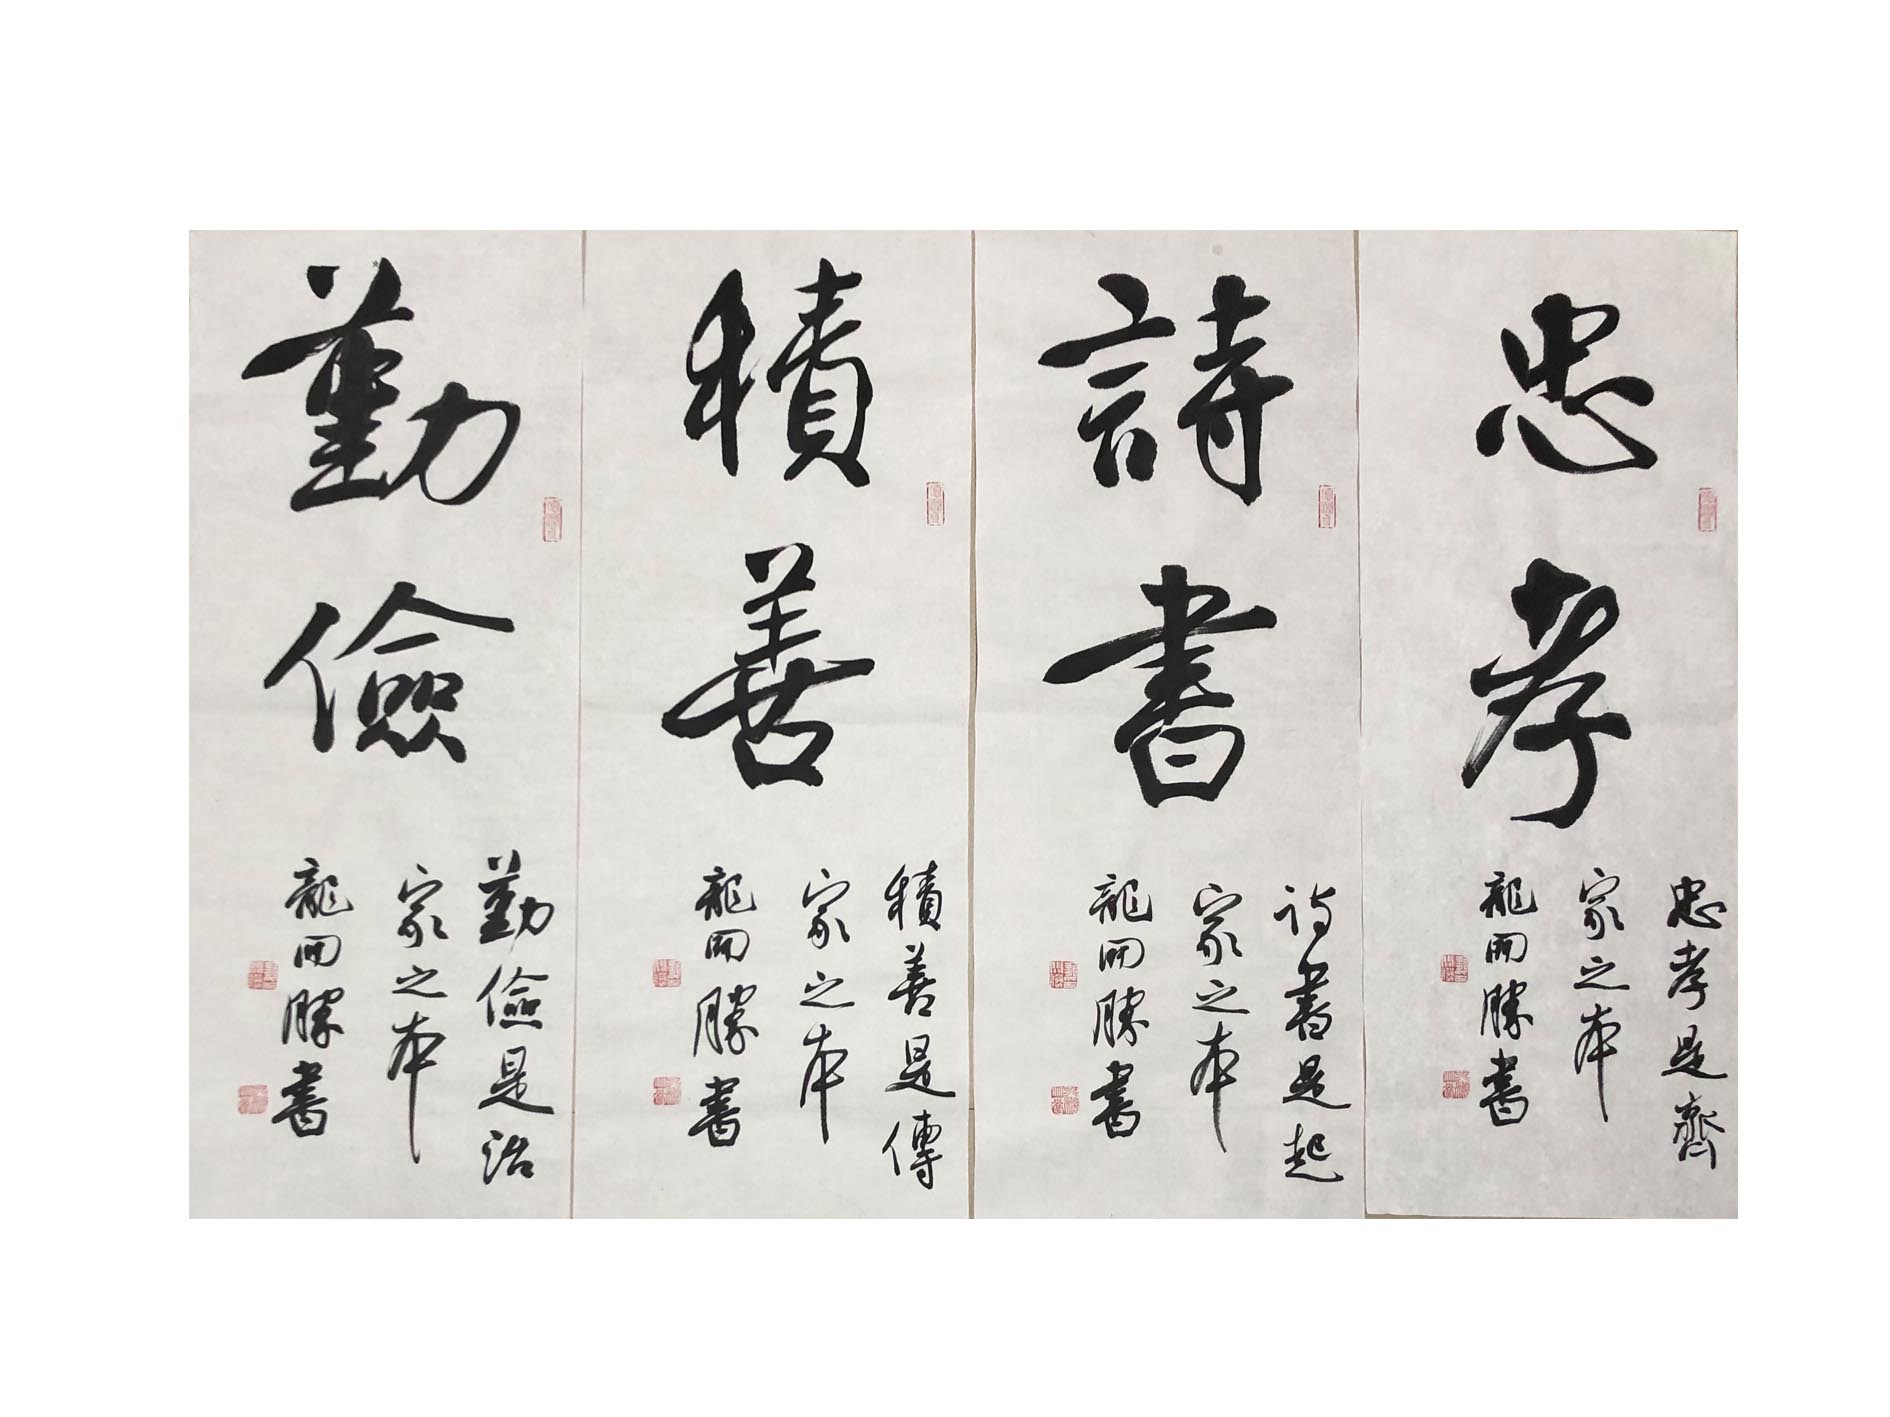 忠孝
忠孝是齊
家之本
龍開勝書
詩書
詩書是起
家之本
龍開勝書
積善
積善是傳
家之本
龍開勝書
勤儉
勤儉是治
家之本
龍開勝書